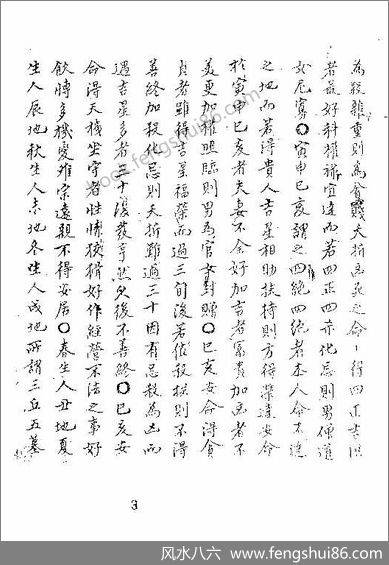 為殺雜重則為貧賤夭折為死之命〻得四正吉供
者最好科權祿官達而若四正四亦化忌則男僧道
女尼寡〇寅申巳亥謂之四絕四絕者本人命不逢
之地而若得貴人吉星相助扶持則方得榮達安命
於寅申巳亥者夫妻不合好加吉者富貴加凶者不
美更加權照臨則男為官女封贈〇巳亥安命得貪
貞者雖得吉星福榮而過三旬後若作殺挾則不得
善終加殺化忌則夭折難過三十因有忌殺為凶而
遇吉星多者三十後發亨然久後不善終〇巳亥安
命得天機坐守者性情猴猾好作經營不法之事好
飲博多機變難宗遠親不得安居〇春生人丑地夏
生人辰地秋生人未地冬生人戌地所謂三丘五墓
3
www.fengshui86.com
风水八六 www.fengshui86.com